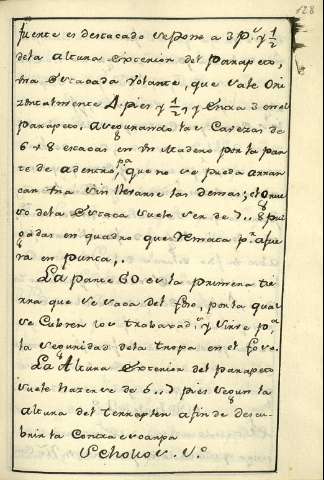 128
fuente es destacado se pone a 3 p.s y 1/2
dela altura exterior del parapeto,
una Estacada Volante, que sale Ori
zontalmente 4 pies y 1/2, y entra 3 en el
parapeto, asegurando las Cavezas de
6 + 8 estacas en un Madero por la par
te de adentro, p.a que no se pueda arran
car una sin llevarse las demas; el Grue
so dela Estaca suele ser de 7 .. 8 pul
gadas en quadro que Remata p.r afue
ra en punta.
La parte 60 es la primera tie
rra que se saca del foso, por la qual
se Cubren los trabajad.s y sirve p.a
la seguridad dela tropa en el foso.
La Altura exterior del parapeto
suele hazerse de 6 .. 7 pies segun la
altura del terraplen afin de descu
brir la Contraescarpa